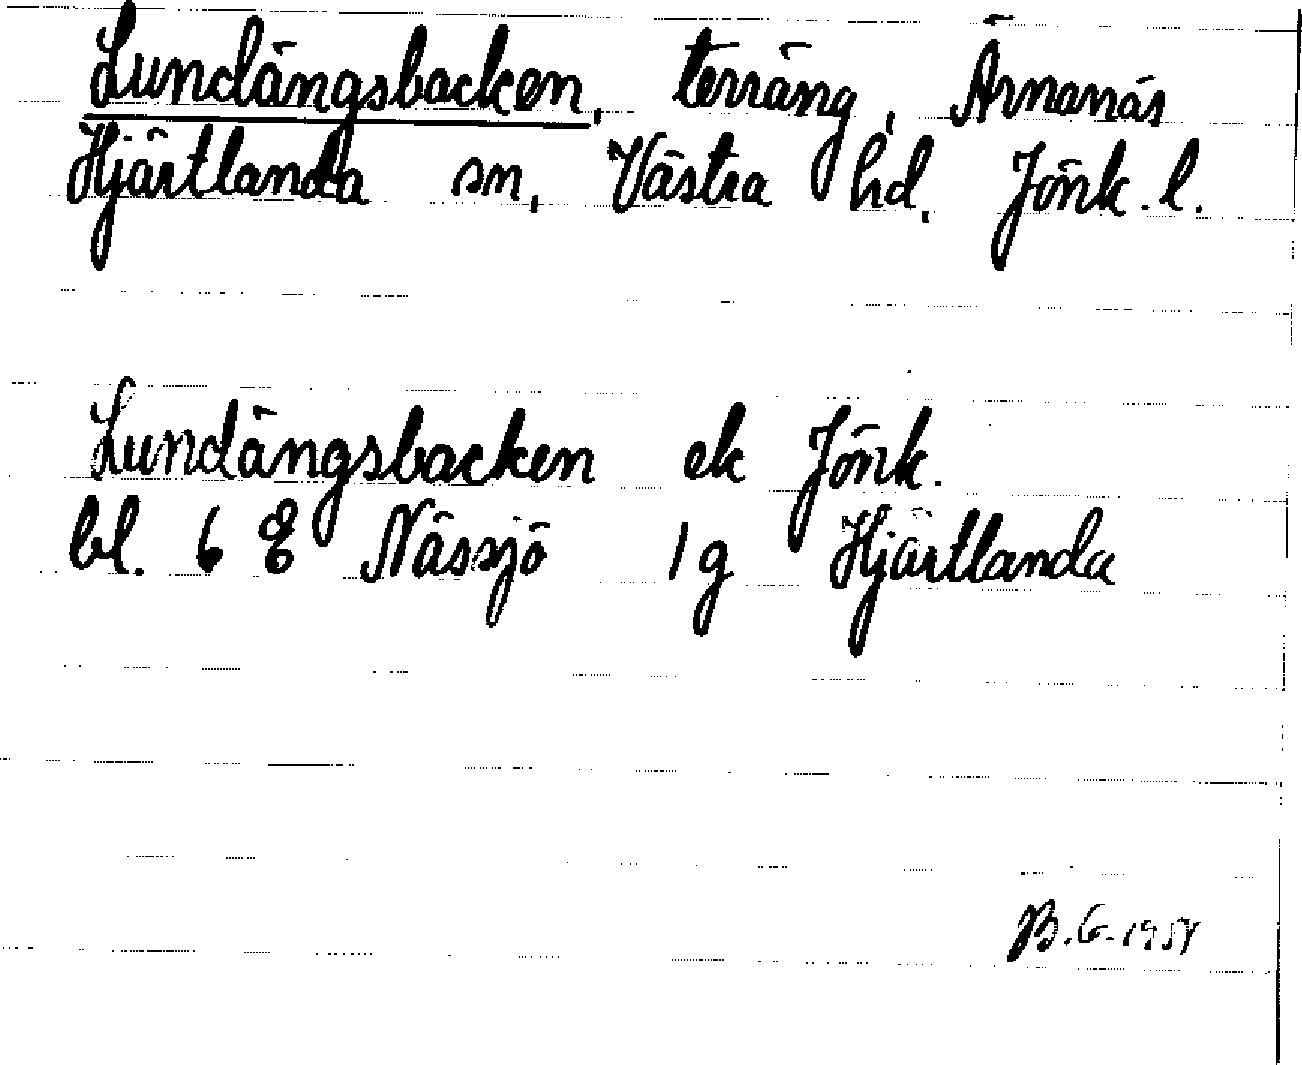 Lundängsbacken, terräng, Ärnanäs
Hjärtlanda sn, Västra hd, Jönk. l.
Lundängsbacken ek Jönk.
bl. 6 E Nässjö 1 g Hjärtlanda
B. G. 1957